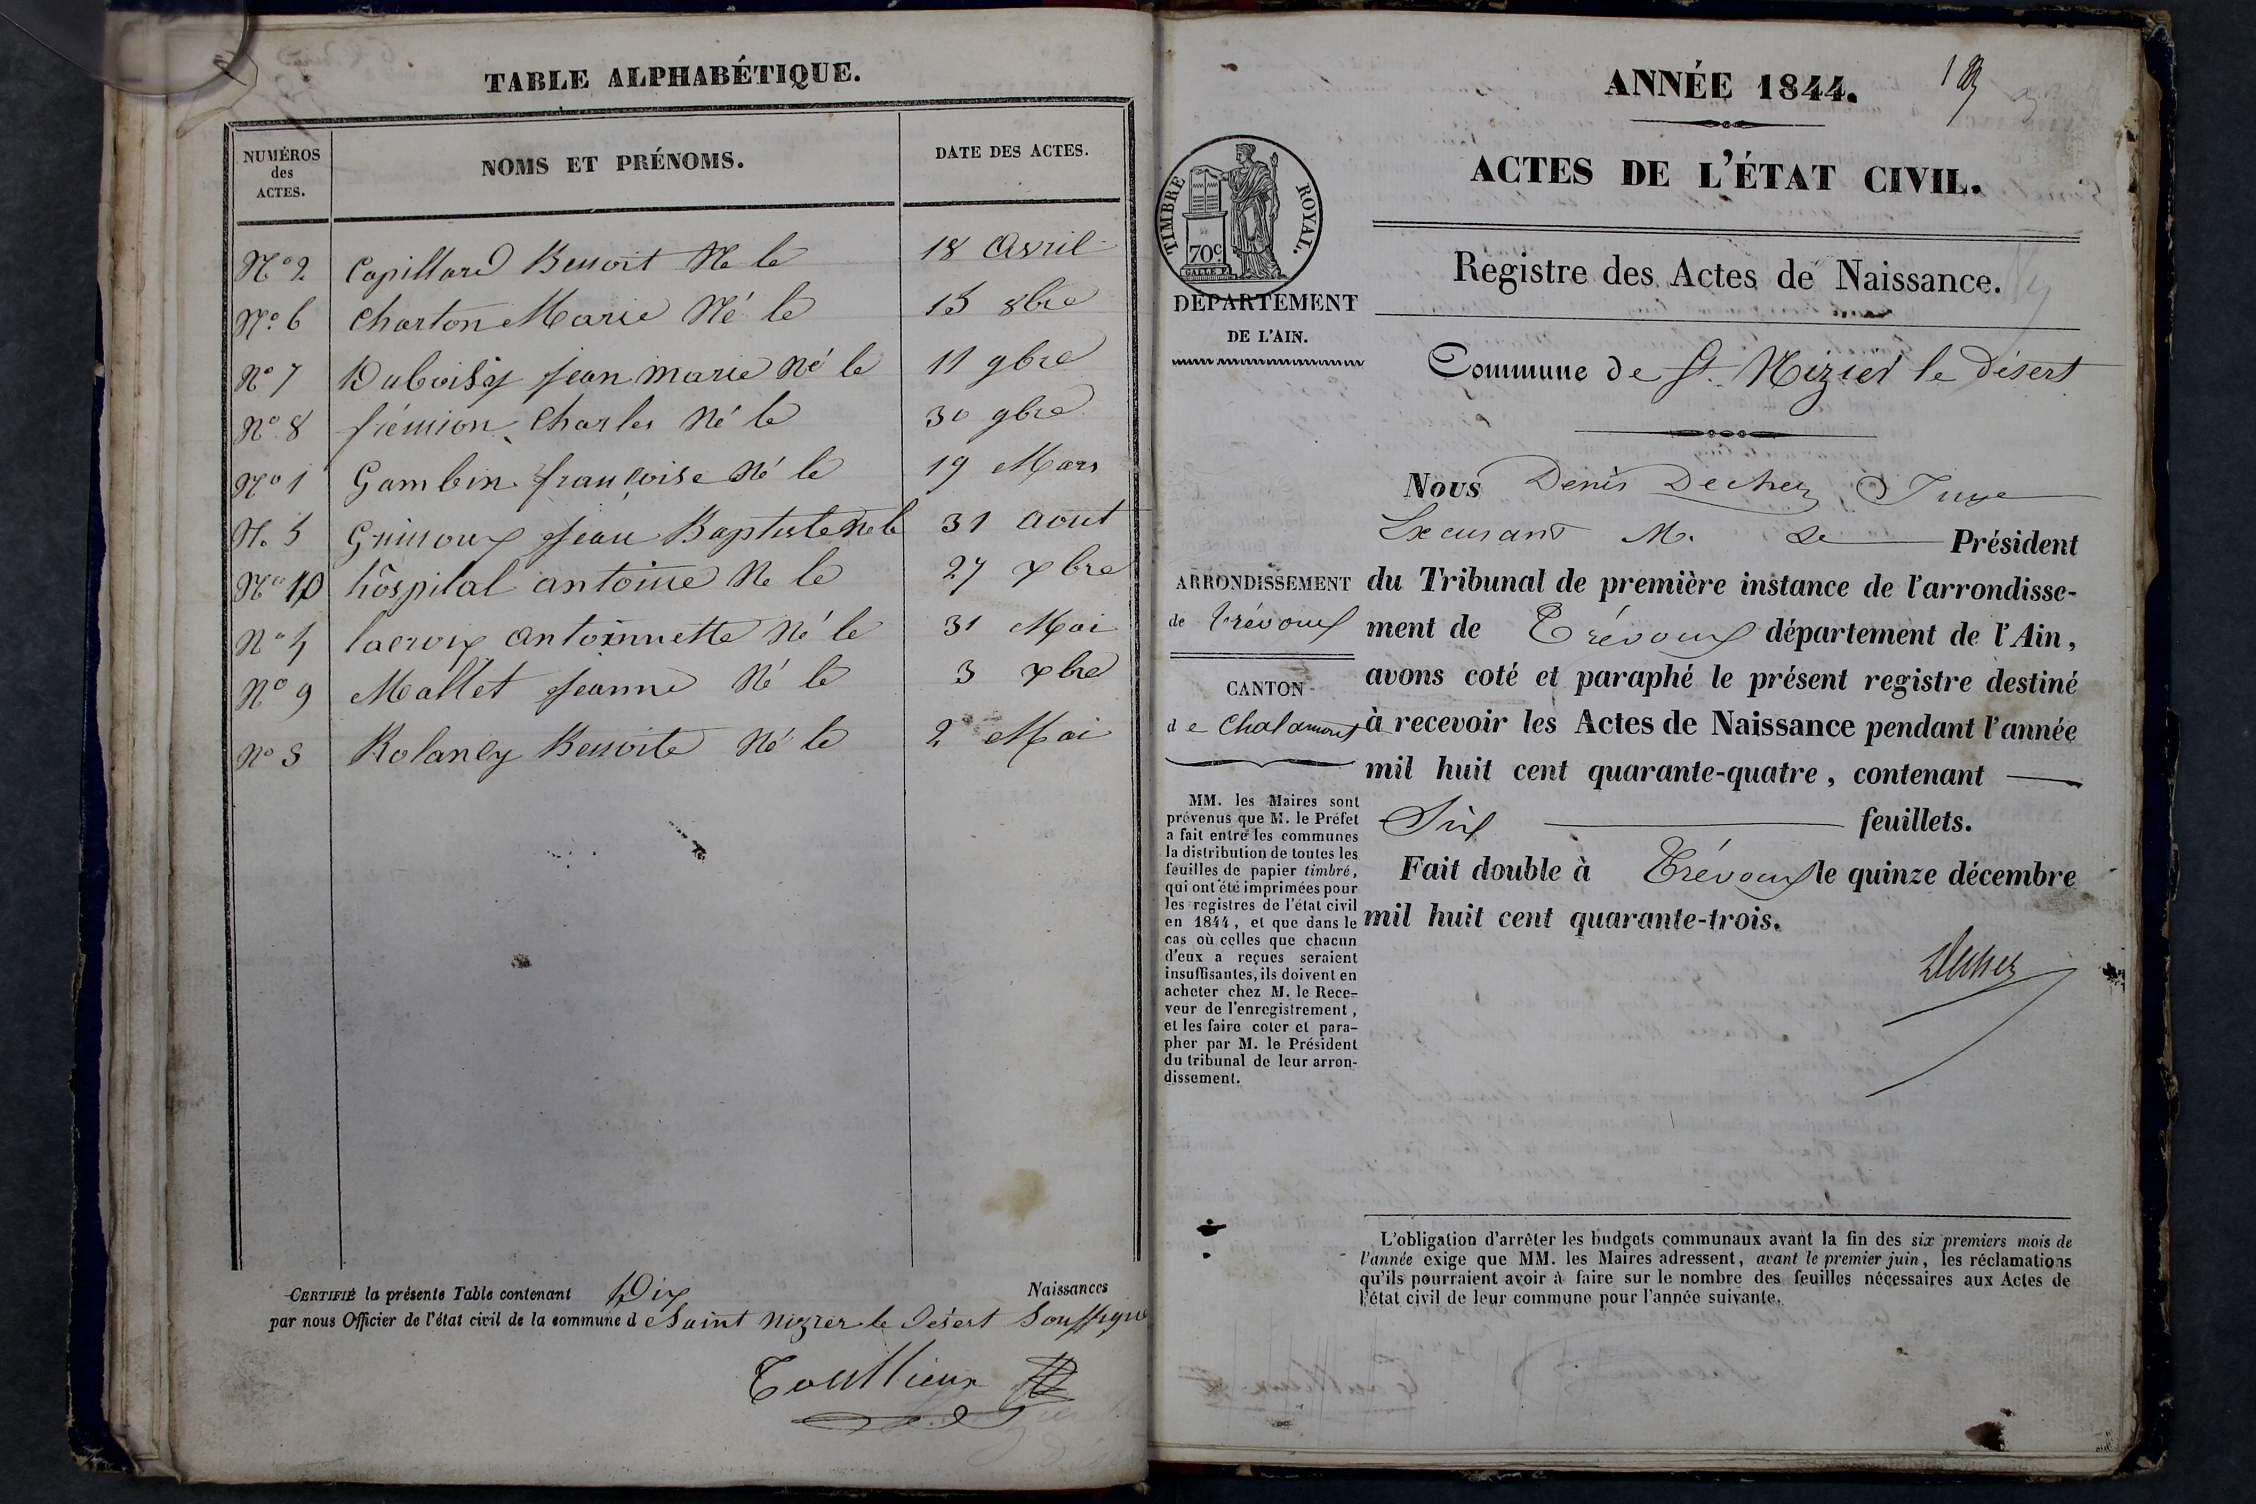 TABLE ALPHABÉTIQUE.
NUMÉROS
des
ACTES.
NOMS ET PRÉNOMS.
DATE DES ACTES.
No 2 Capillard Benoit Né le 18 Avril
No. 6 Charton Marie Né le 15 8bre
No 7 Duboisy Jean Marie Né le 11 9bre
No 8 frémion Charles Né le 30 9bre
No 1 Gambin françoise Né le 19 Mars
N. 5 Jean Baptiste Né le 31 Aout
No 10 hôspital antoine Ne le 27 xbre
No 4 lacroix Antoinnette Né le 31 Mai
No 9 Mallet Jeanne Né le 3 xbre
No 3 Rolandy Benoite Né le 2 Mai
CERTIFIÉ la présente Table contenant Dix Naissances
par nous Officier de l'état civil de la commune de Saint Nizier le Désert Soussigné
ANNÉE 1844.
ACTES DE L'ÉTAT CIVIL.
TIMBRE ROYAL.
70c
Registre des Actes de Naissance.
DÉPARTEMENT
DE L'AIN.
Commune de St. Nizier le Désert
Nous Denis Dechez, Juge
M. le Président
ARRONDISSEMENT
de Trévoux
CANTON
de Chalamont
du Tribunal de première instance de l'arrondisse-
ment de Trévoux département de l'Ain,
avons coté et paraphé le présent registre destiné
à recevoir les Actes de Naissance pendant l'année
mil huit cent quarante-quatre, contenant
Six feuillets.
Fait double à Trévoux le quinze décembre
mil huit cent quarante-trois.
Dechez
MM. les Maires sont
prévenus que M. le Préfet
a fait entre les communes
la distribution de toutes les
feuilles de papier timbré,
qui ont été imprimées pour
les registres de l'état civil
en 1844, et que dans le
cas où celles que chacun
d'eux a reçues seraient
insuffisantes, ils doivent en
acheter chez M. le Rece-
veur de l'enregistrement,
et les faire coter et para-
pher par M. le Président
du tribunal de leur arron-
dissement.
L'obligation d'arrêter les budgets communaux avant la fin des six premiers mois de
l'année exige que MM. les Maires adressent, avant le premier juin, les réclamations
qu'ils pourraient avoir à faire sur le nombre des feuilles nécessaires aux Actes de
l'état civil de leur commune pour l'année suivante.